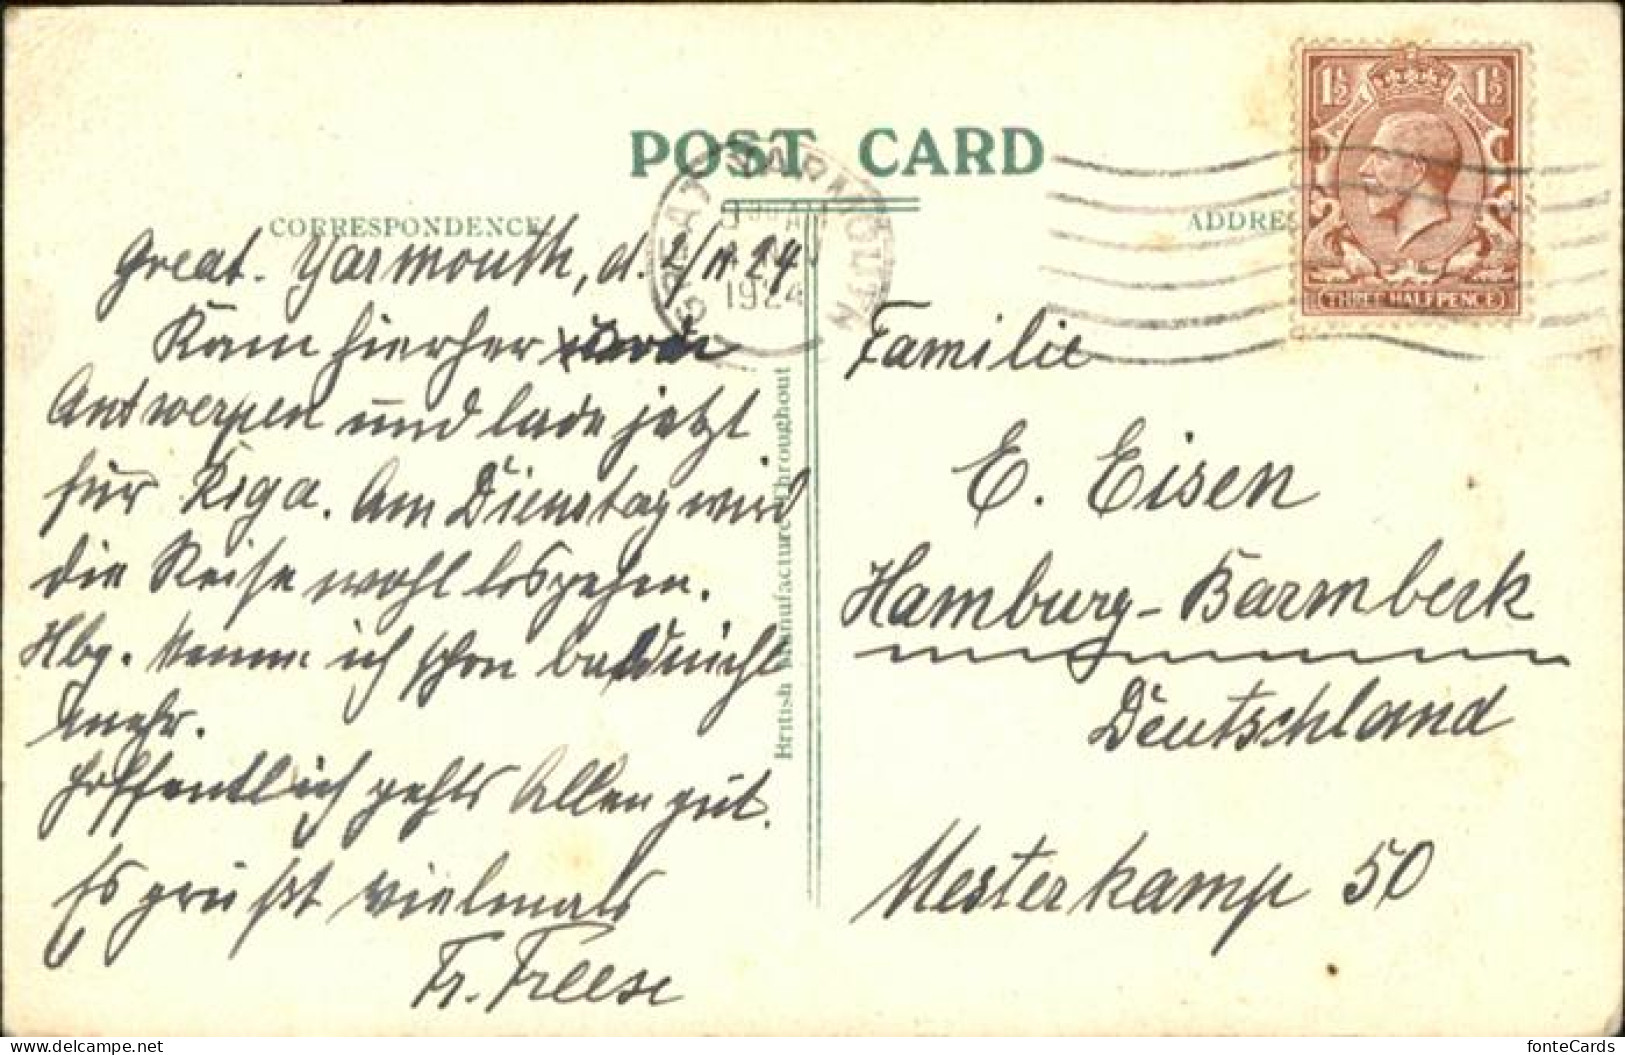 POST CARD
CORRESPONDENCE
ADDRE
GREAT YARMOUTH
1924
1½ 1½
THREE HALFPENCE
Great. Yarmouth, d. 2/11 24
Kam hierher
Antwerpen und lade jetzt
für Riga. Am Dienstag wird
die Reise wohl losgehen.
Hbg. kenne ich schon bald nicht
mehr.
Hoffentlich gehts Allen gut.
Es grüßt vielmals
Fr. Freese
British Manufacture Throughout
Familie
E. Eisen
Hamburg-Barmbeck
Deutschland
Mesterkamp 50
fonteCards